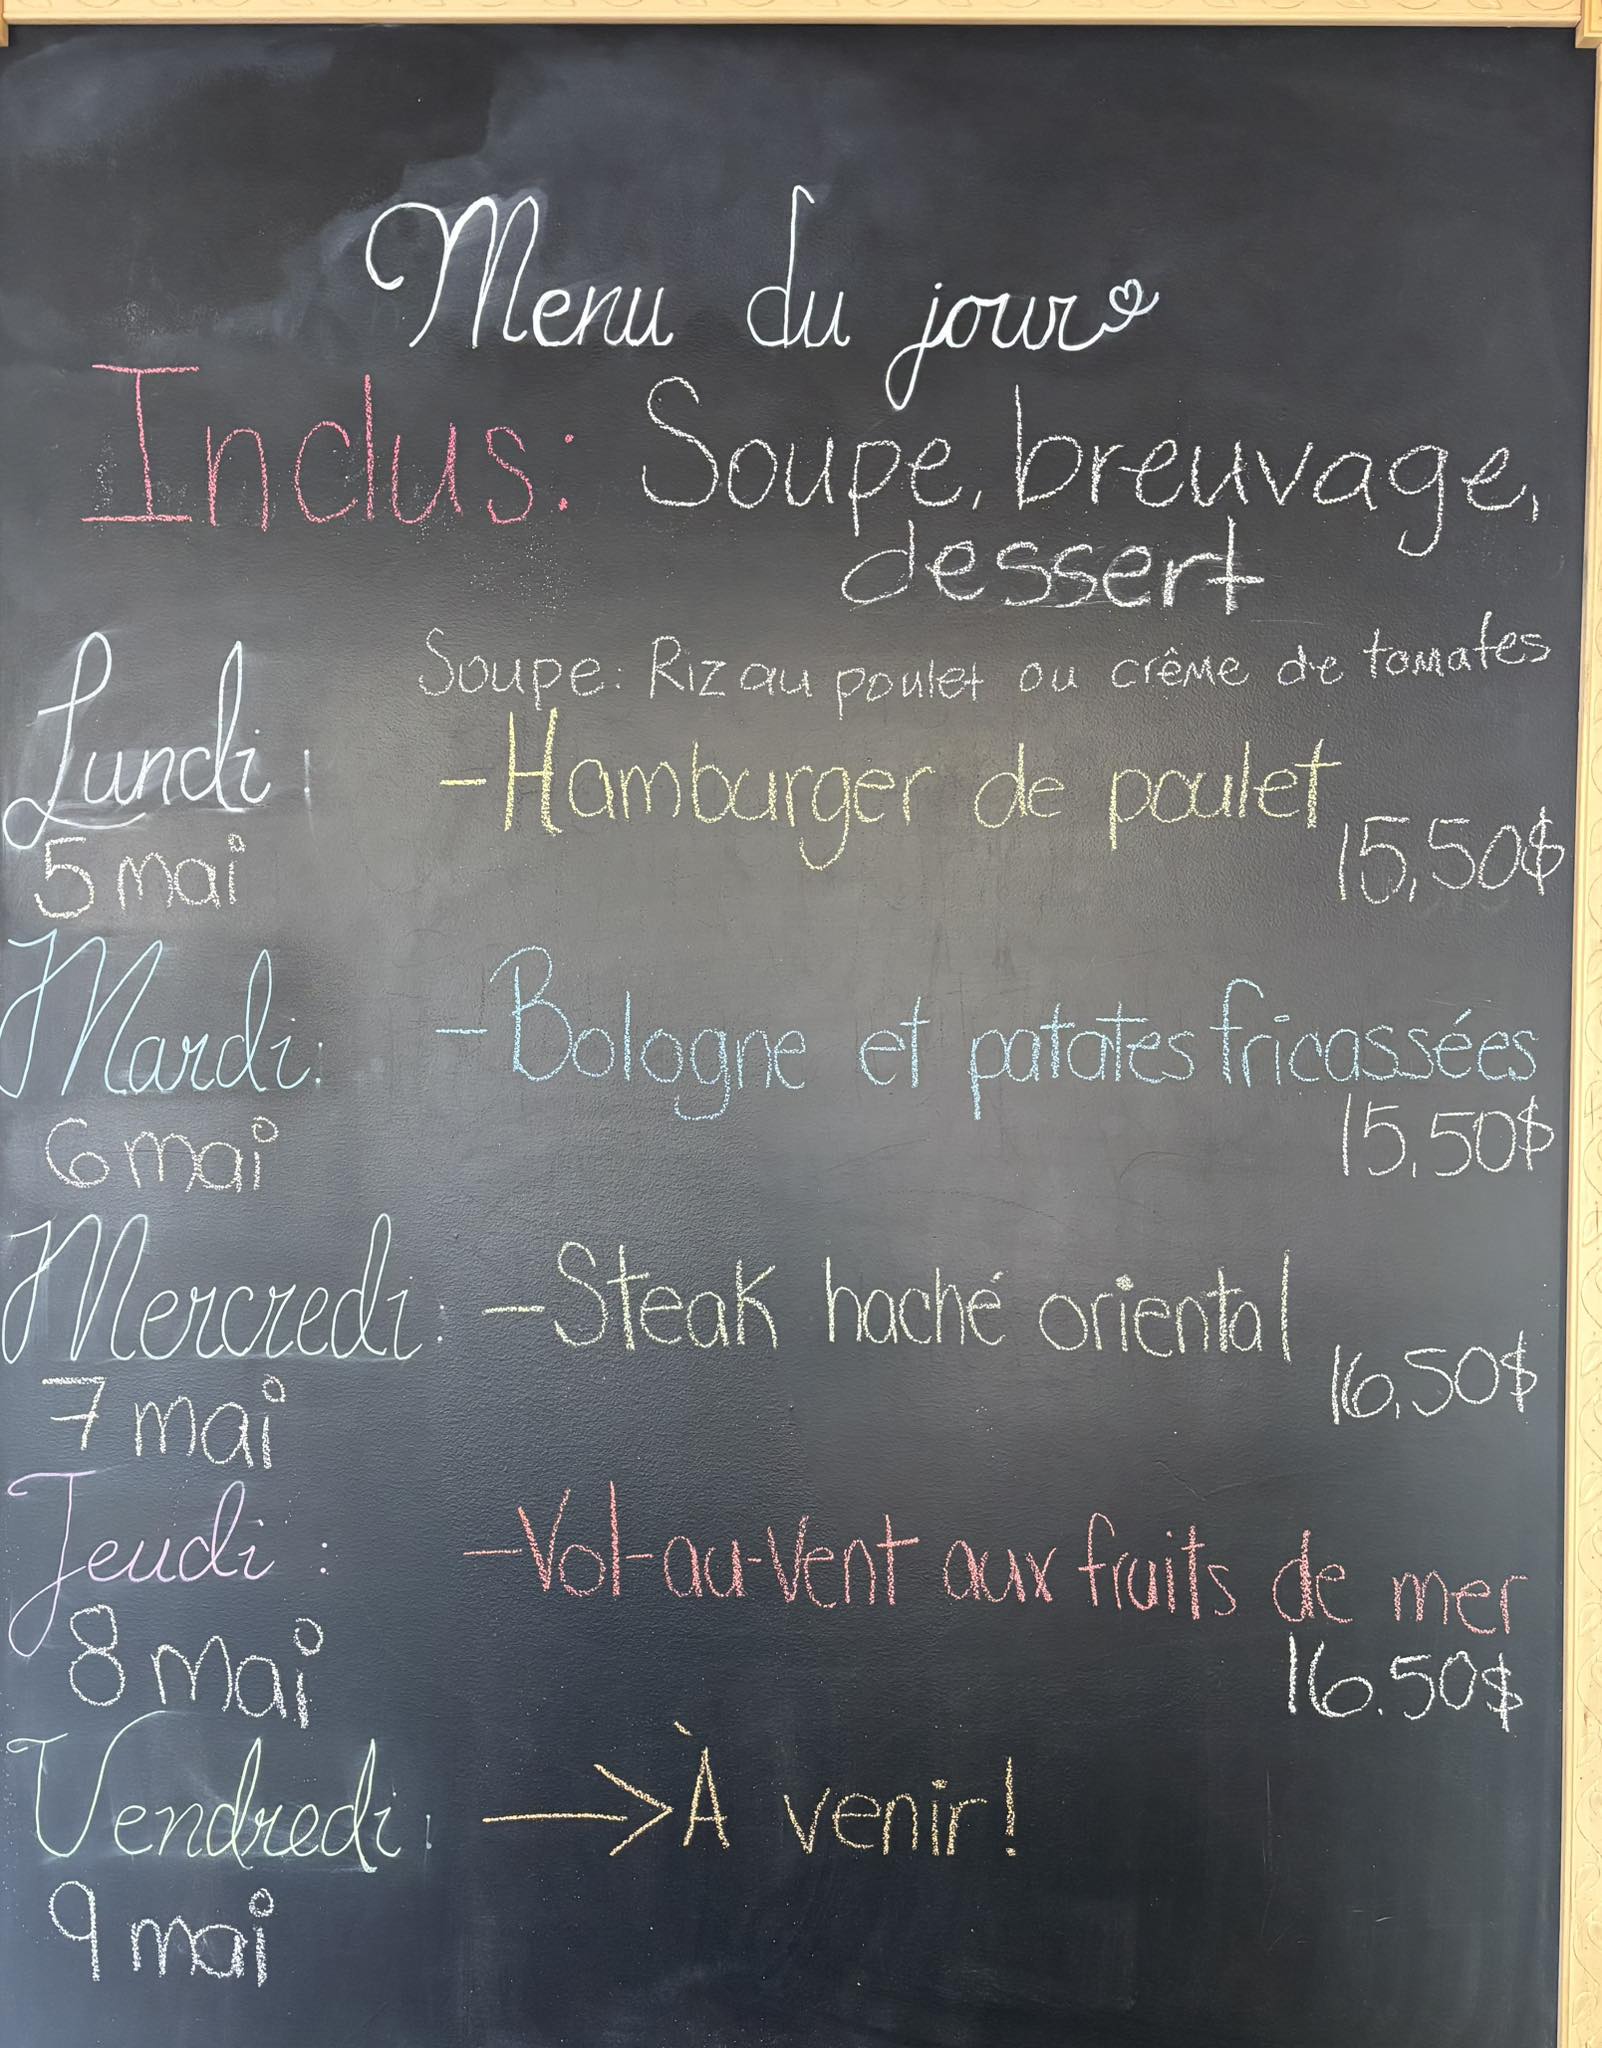 Menu du jour
Inclus: Soupe, breuvage,
dessert
Soupe: Riz au poulet ou crême de tomates
Lundi: -Hamburger de poulet
5 mai 15,50$
Mardi: -Bologne et patates fricassées
6 mai 15,50$
Mercredi: -Steak haché oriental
7 mai 16,50$
Jeudi: -Vol-au-Vent aux fruits de mer
8 mai 16.50$
Vendredi: → À venir!
9 mai